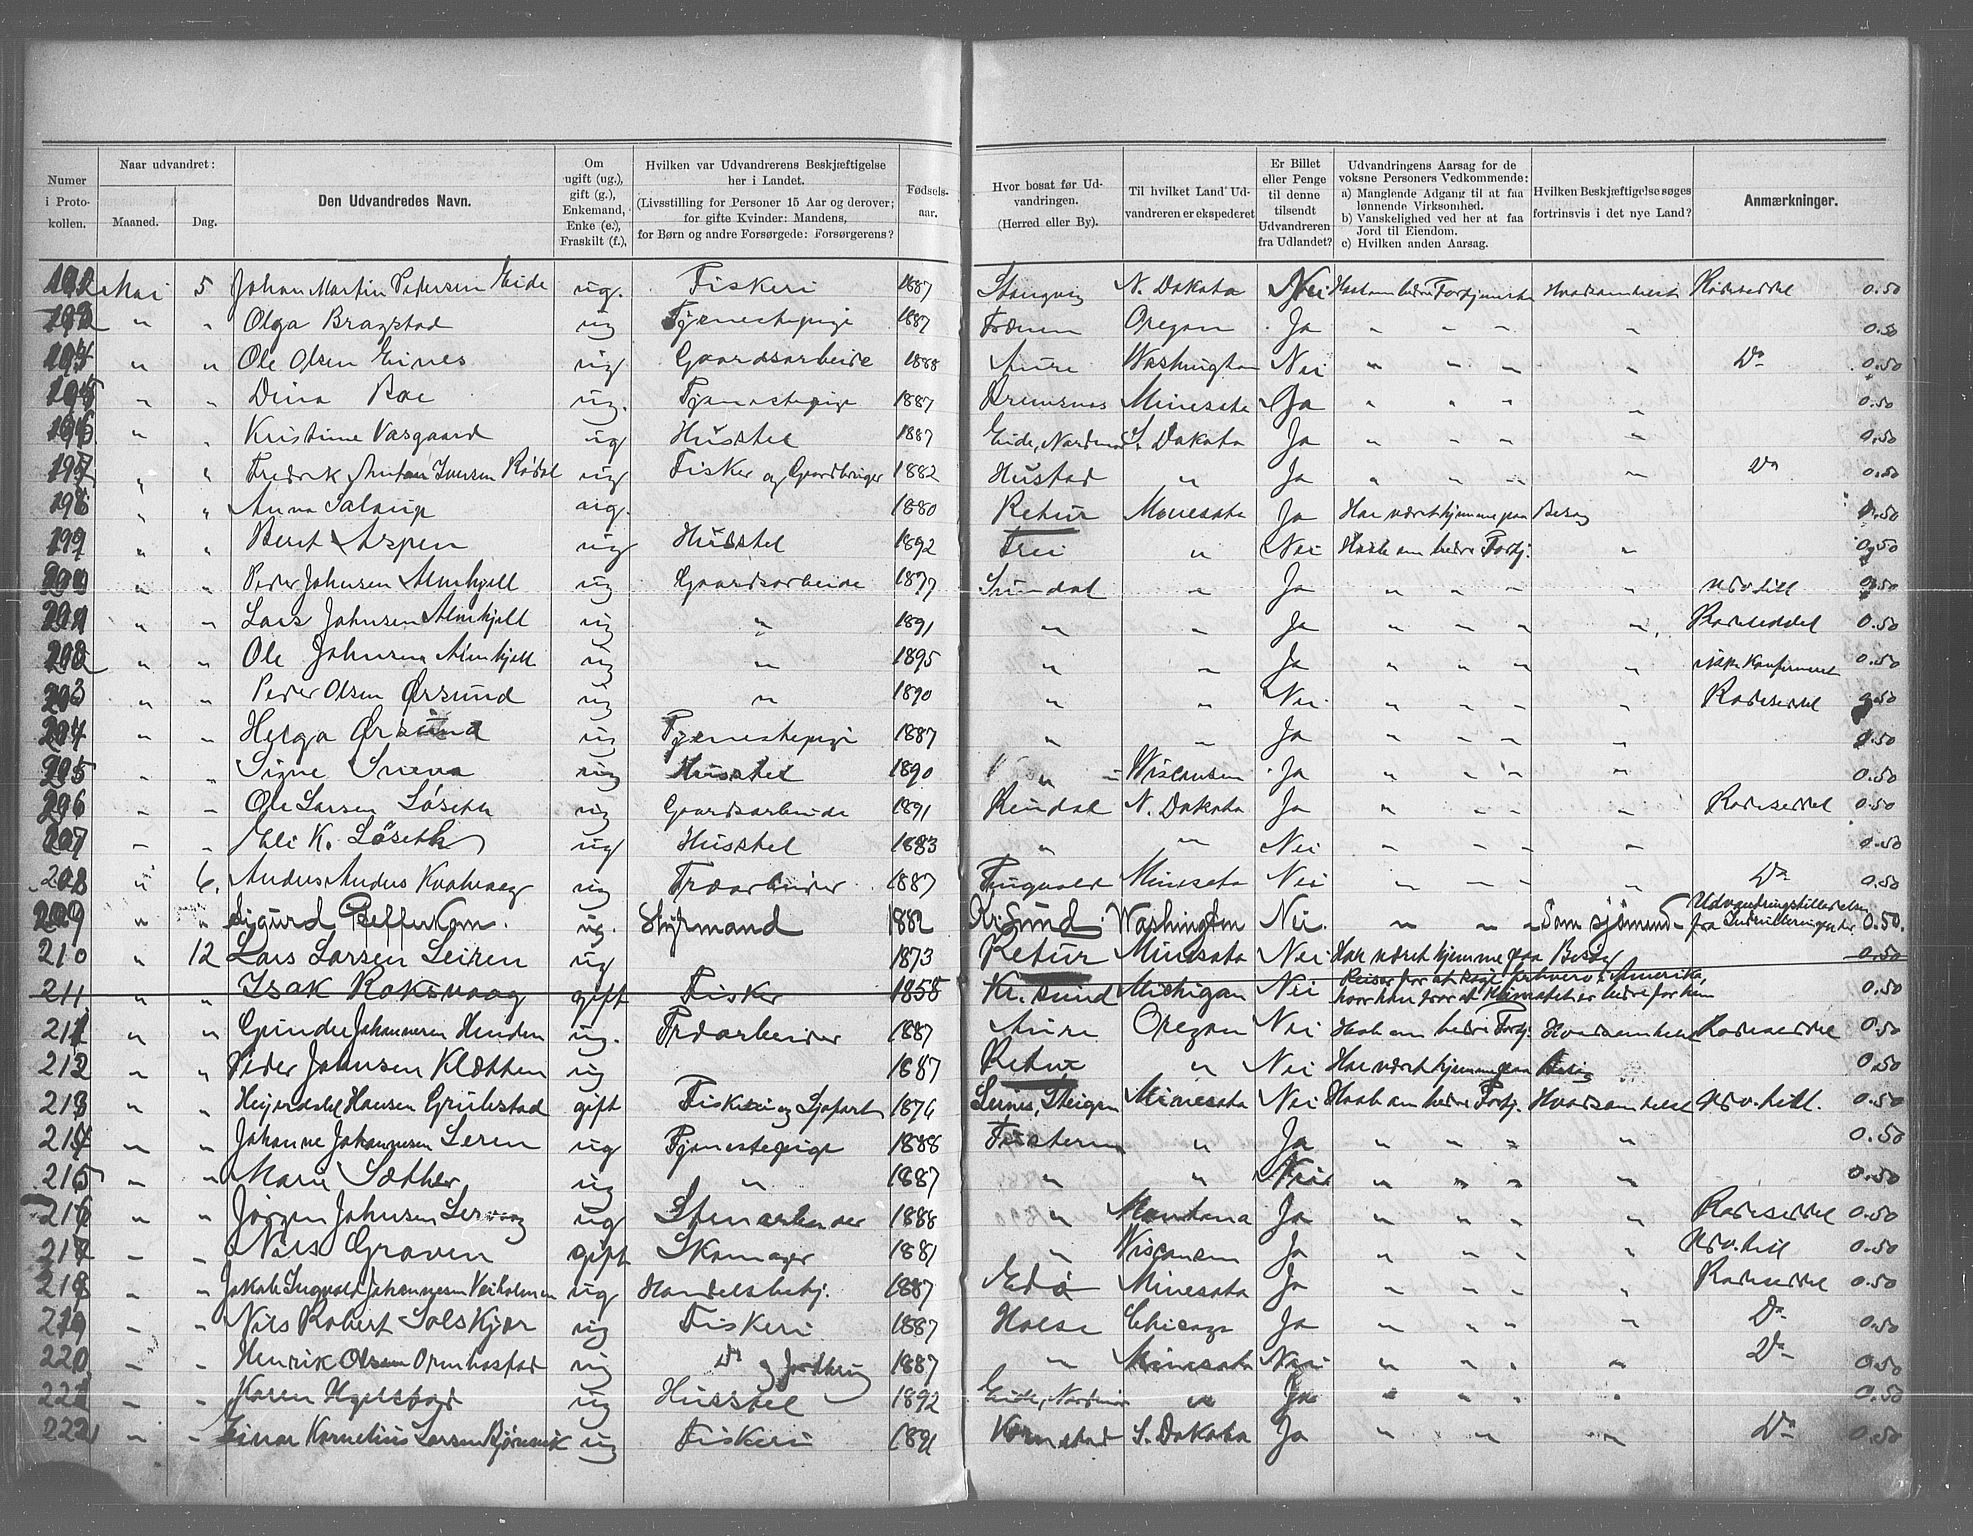 Numer i Proto-kollen. | Naar udvandret: Maaned. | Dag. | Den Udvandredes Navn. | Om ugift (ug.), gift (g.), Enkemand, Enke (e.), Fraskilt (f.), | Hvilken var Udvandrerens Beskjæftigelse her i Landet. (Livsstilling for Personer 15 Aar og derover; for gifte Kvinder: Mandens, for Børn og andre Forsørgede: Forsørgerens? | Fødsels-aar. | Hvor bosat før Ud-vandringen. (Herred eller By). | Til hvilket Land Ud-vandreren er ekspederet | Er Billet eller Penge til denne tilsendt Udvandreren fra Udlandet? | Udvandringens Aarsag for de voksne Personers Vedkommende: a) Manglende Adgang til at faa lønnende Virksomhed. b) Vanskelighed ved her at faa Jord til Eiendom. c) Hvilken anden Aarsag. | Hvilken Beskjæftigelse søges fortrinsvis i det nye Land? | Anmærkninger.
Mai 5 Johan Martin Pedersen Eide ug. Fiskeri 1887 Stangvig N. Dakota Nei Haab om bedre Fortjeneste Hvadsomhelst Rødeseddel 0.50
" " Olga Bragstad ug Tjenestepige 1887 Frænen Oregon Ja " " " " 0.50
" " Ole Olsen Eines ug Gaardsarbeide 1888 Aure Washington Nei " " " " Do 0.50
195 " " Dina Boe ug. Tjenestepige 1887 Bremsnes Minesota Ja " " " " 0.50
196 " " Kristine Vasgaard ug Husstel 1887 Eide, Nordmør S. Dakota Ja " " " " 0.50
197 " " Fredrik Anton Iversen Rødal ug Fisker og Gaardbruger 1882 Hustad " Ja " " " " Do 0.50
198 " " Anna Salaup ug. 1880 Retur Minesota Ja Har været hjemme paa Besøg 0.50
199 " " Berit Aspen ug Husstel 1892 Frei " Nei Haab om bedre Fortj. " 0.50
200 " " Peder Johnsen Almhjell ug Gaardsarbeide 1877 Sundal " Ja " " " " udv. till 0.50
201 " " Lars Johnsen Almhjell ug " 1891 " " Ja " " " " Rødeseddel 0.50
202 " " Ole Johnsen Almhjell ug " 1895 " " Ja " " " " ikke konfirmeret 0.50
203 " " Peder Olsen Ørsund ug " 1890 " " Nei " " " " Rødeseddel 0.50
204 " " Helga Ørsund ug Tjenestepige 1887 " " Ja " " " " 0.50
205 " " Signe Sneva ug Husstel 1890 " Wisconsen Ja " " " " 0.50
206 " " Ole Larsen Løseth ug Gaardsarbeide 1891 Rindal N. Dakota Ja " " " " Rødeseddel 0.50
207 " " Eli K. Løseth ug Husstel 1883 " " Nei " " " " 0.50
208 " 6. Anders Anders Kvalvaag ug Træarbeider 1887 Tingvold Minesota Nei " " " " Do 0.50
209 " " Sigurd Pefferkorn. ug. Styrmand 1882 Kr.sund Washington Nei. " " " Som sjömand Udvandringstilladelse fra 0.50.
210 " 12 Lars Larsen Leiren ug 1873 Retur Minesota Nei Har været hjemme paa Besøg 0.50
211 " " Isak Roksvaag gift Fisker 1858 Kr.sund Michigan Nei Reiser for at søge Erhverv i Amerika, hvor han tror at Klimatet er bedre for ham 0.50
211 " " Gunder Johannesen Henden ug. Træarbeider 1887 Aure Oregon Nei Haab om bedre Fortj. Hvadsomhelst Rødeseddel 0.50
212 " " Peder Johnsen Klætten ug 1887 Retur " Nei Har været hjemme paa Besøg 0.50
213 " " Hansen Grubstad gift Fiskeri og Sjøfart 1876 Leines, Steigen Minesota Nei Haab om bedre Fortj. Hvadsomhelst udv. till. 0.50
214 " " Johanne Johannesen Leren ug Tjenestepige 1888 Tustern " Ja " " " " 0.50
215 " " Marie Sæther ug " 1887 " " Nei " " " " 0.50
216 " " Jørgen Johnsen Lervaag ug Stenarbeider 1888 " Montana Ja " " " " Rødeseddel 0.50
217 " " Nils Graven gift Skomager 1881 " Wisconsin Ja " " " " udv. till 0.50
218 " " Jakob Ingvald Johannesen Veiholmen ug Handelsbetj. 1887 Edø Minesota Ja " " " " Rødeseddel 0.50
219 " " Nils Robert Solskjær ug Fiskeri 1887 Halse Chicago Ja " " " " Do 0.50
220 " " Henrik Olsen Ormhosstad ug Do og Jordbrug 1887 " Minesota Nei " " " " Do 0.50
221 " " Karen Hgelstad ug Husstel 1892 Eide, Nordmør " Ja " " " " 0.50
222 " " Einar Kornelius Larsen Bjørnvik ug Fiskeri 1891 Kornstad S. Dakota Ja " " " " Do 0.50